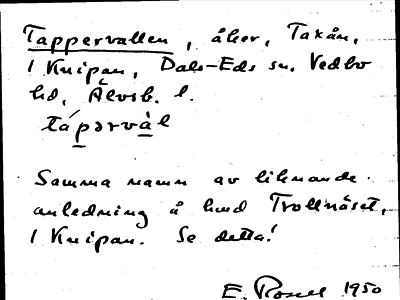 Tappervallen, åker, Taxån,
1 Knipan, Dals-Eds sn, Vedbo
hd, Älvsb. l.
tápərvàl
Samma namn av liknande
anledning å hmd Trollnäset,
1 Knipan. Se detta!
E. Rosell 1950